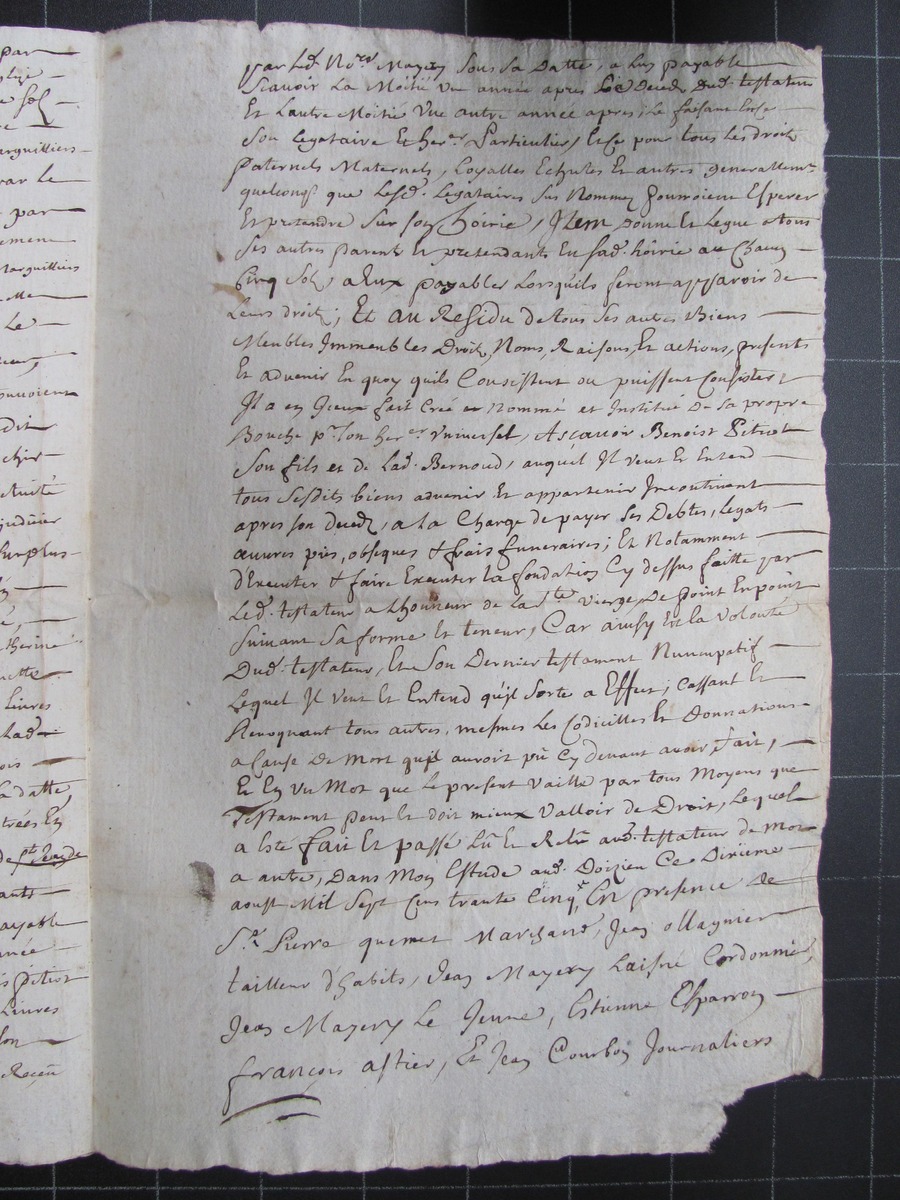 par
sol
arguilliers
par le
par
marguilliers
Le
dit
judicier
surplus
Livres
Lad.
la datte
payable
Livres
par Led. No.re Mayery sous sa Datte, a luy payable
Scavoir La Moitié une année apres Le Deced Dud. testateur
Et Lautre Moitié Une autre année apres, Le faisant Estre
Son Legataire Et her.er Particulier, Et ce pour tous Les droits
paternels Maternels, Loyalles Echutes Et autres generallem.t
quelconqs que Lesd. Legataires Sus Nommes pourroient Esperer
Et pretendre Sur son hoirie, Item donne Et Legue a tous
Ses autres parents Et pretendants En Sad. hoirie au Chacun
Cinq Sols, a Eux payables Lorsquils feront apparoir de
Leurs droits; Et au Residu de tous Ses autres Biens
Meubles Immeubles Droits, Noms, Raisons, Et actions, presents
Et advenir En quoy quils Consistent ou puissent Consister
Il a En Iceux fait Creé et Nommé et Institué De Sa propre
Bouche p.r son her.er Universel, Asçavoir Benoist Petiot
Son fils et de Lad. Bernoud, auquel Il veut Et Entend
tous Sesdits biens advenir Et appartenir Incontinant
apres son Deced, a La Charge de payer Ses Debtes, Legats
œuvres pies, obseques & frais funeraires; Et Notamment
d'Executer & faire Executer la fondation Cy dessus faitte par
Led. testateur a Lhonneur de La S.te Vierge, De point En point
Suivant Sa forme Et teneur, Car ainsy Est La Volonté
Dud. testateur, Et Son Dernier testament Nuncupatif
Lequel Il Veut Et Entend quil Sorte a Effect; Cassant Et
Revoquant tous autres, mesmes Les Codicilles Et Donnations
a Cause De Mort quil auroit pû Cy devant avoir fait,
Et En Un Mot que Le present Vaille par tous Moyens que
Testament peut Et doit mieux Valloir de Droit, Lequel
a Esté fait Et passé Lû Et Relû aud. testateur de Mot
a autre, Dans Mon Estude aud. Doizieu Ce Dixième
aoust Mil Sept Cens trante Cinq, En presence de
S.r Pierre quemet Marchand, Jean ollagnier
tailleur d'habits, Jean Mayery Laisné Cordonnier,
Jean Mayery Le Jeune, Estienne Esparron
françois astier, Et Jean Courbon Journaliers